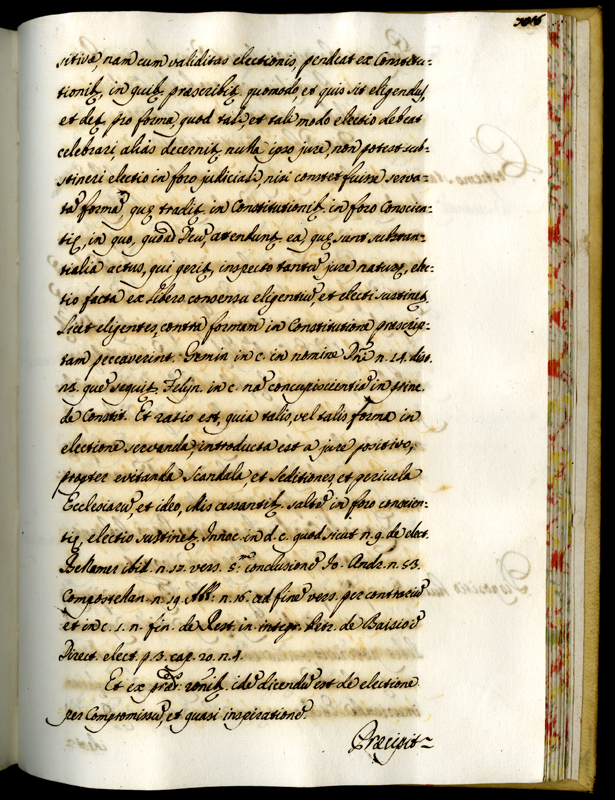 sitivæ, nam cum validitas electionis, pendeat ex Constitu-
tionib, in quib, præscribit quomodo, et quis sit eligendus,
et det pro forma, quod tali, et tali modo electio debeat
celebrari, aliàs decernit, nulla ipso jure, non potest sub-
stineri electio in foro judiciali, nisi constet fuisse serva-
tã formã, quę tradit in Constitutionib, in foro Conscien-
tię, in quo, quoad Deũ, attendunt ea, quę sunt substan-
tialia actus, qui gerit, inspecto tantũ jure naturę, elec-
tio facta ex libero consensu eligentiũ, et electi sustinet,
licet eligentes, contra formam in Constitutione præscrip-
tam peccaverint. Gemin in c. in nomine Dñi n. 14. dist.
23. quẽ sequit, Felijn. in c. nã concupiscentiã in prine.
de Constit. Et ratio est, quia talis, vel talis, forma in
electione servanda, introducta est a jure positivo,
propter evitanda scandala, et seditiones, et pericula
Ecclesiarũ, et ideo, illis cessantib, saltẽ in foro conscien-
tię, electio sustinet, Innoc. in d. c. quod sicut n. 9. de elect.
Bellamer ibid. n. 12. vers. 5.ᵐ conclusionẽ Jo. Andr. n. 53.
Compostellan. n. 19. Abb: n. 16. ad finẽ vers. per contrariũ
et in c. 1. n. fin. de Rest. in integr. Petr. de Baisio
Direct. elect. p. 3. cap. 20. n. 4.
Et ex præd. rõnib. idẽ dicendũ est de electione
per Compromissũ, et quasi inspirationẽ.
Præcipit~